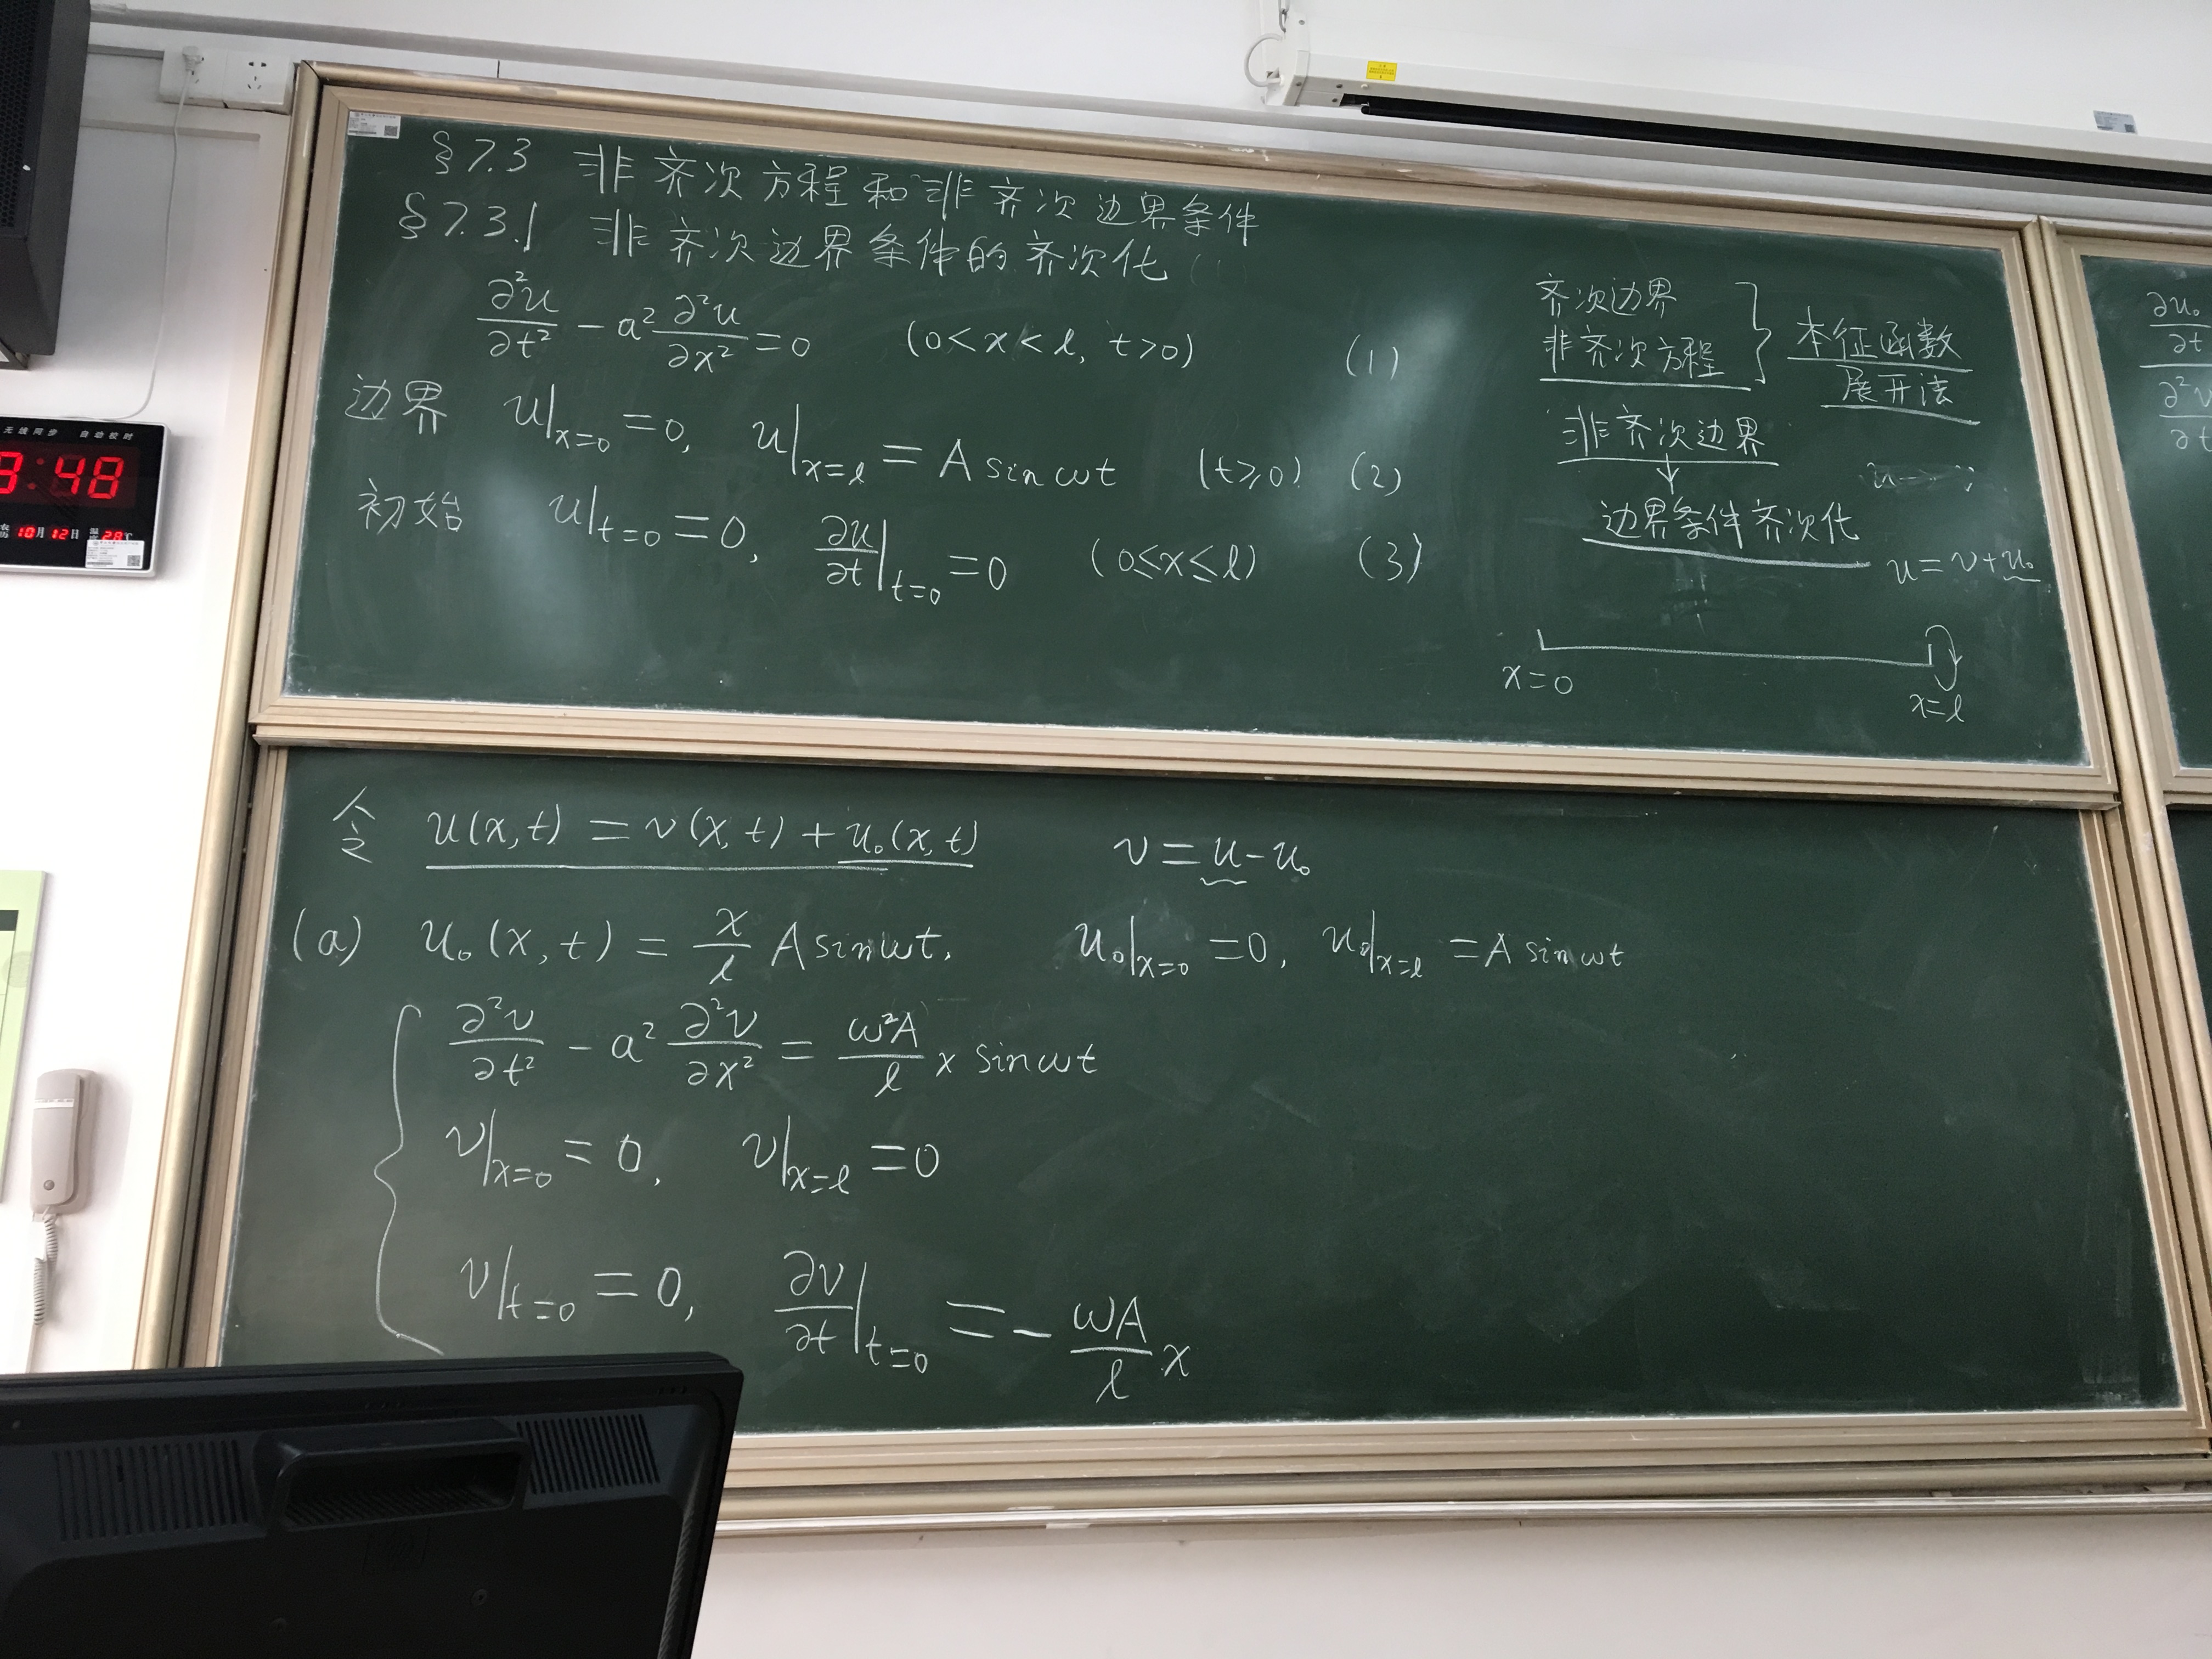 §7.3 非齐次方程和非齐次边界条件
§7.3.1 非齐次边界条件的齐次化
∂²u/∂t² - a² ∂²u/∂x² = 0 (0<x<l, t>0) (1)
边界 u|x=0 = 0, u|x=l = A sin ωt (t≥0) (2)
初始 u|t=0 = 0, ∂u/∂t|t=0 = 0 (0≤x≤l) (3)
齐次边界
非齐次方程
本征函数
展开法
非齐次边界
↓
边界条件齐次化
u = v + u₀
x=0
x=l
令 u(x,t) = v(x,t) + u₀(x,t) v = u - u₀
(a) u₀(x,t) = x/l A sin ωt. u₀|x=0 = 0, u₀|x=l = A sin ωt
∂²v/∂t² - a² ∂²v/∂x² = ω²A/l x sin ωt
v|x=0 = 0, v|x=l = 0
v|t=0 = 0, ∂v/∂t|t=0 = - ωA/l x
∂u₀/∂t
∂²v
∂t
无线同步 自动校时
:48
10月12日 温度 28℃